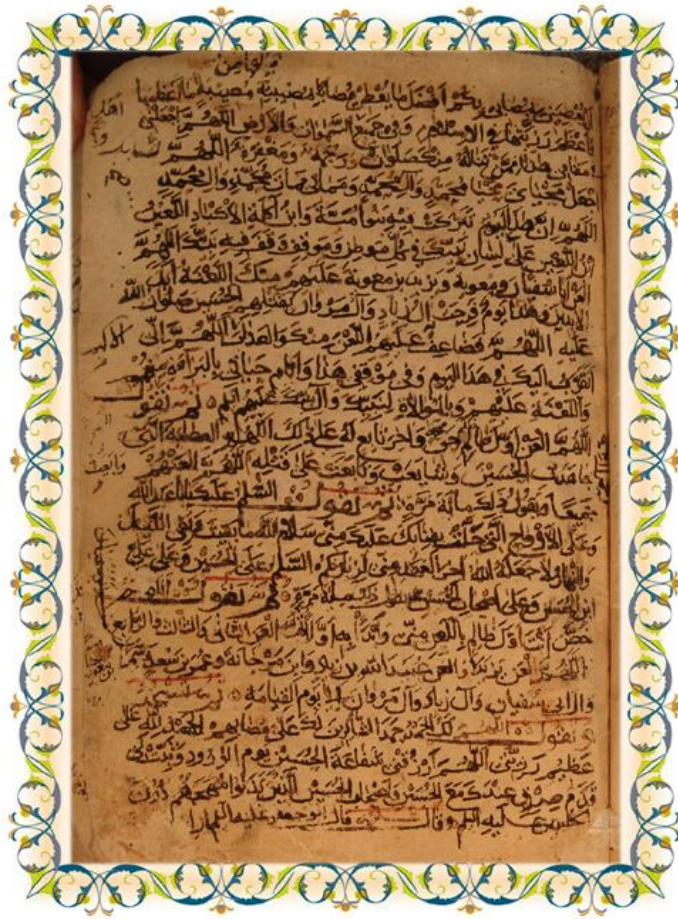 مصابي بكم افضل ما يعطي مصابا بمصيبته مصيبة ما اعظمها
واعظم رزيتها في الاسلام وفي جميع السموات والارض اللهم اجعلني
مقامي هذا ممن تناله منك صلوات ورحمة ومغفرة اللهم
اجعل محياي محيا محمد وآل محمد ومماتي ممات محمد وال محمد
اللهم ان هذا اليوم تبركت فيه بنو امية وابن اكلة الاكباد اللعين
ابن اللعين على لسان نبيك في كل موطن وموقف وقف فيه نبيك اللهم
العن ابا سفيان ومعوية ويزيد بن معوية عليهم منك اللعنة ابد
الابدين وهذا يوم فرحت ال زياد وآل مروان بقتلهم الحسين صلوات الله
عليه اللهم فضاعف عليهم اللعن منك والعذاب اللهم اني
اتقرب اليك في هذا اليوم وفي موقفي هذا وايام حياتي بالبراءة منهم
واللعنة عليهم وبالموالاة لنبيك وآل نبيك عليهم السلم ثم تقول
اللهم العن اول ظالم واخر تابع له على ذلك اللهم العصابة التي
جاهدت الحسين وشايعت وتابعت على قتله اللهم العنهم
جميعا وتقول ذلك مائة مرة ثم تقول السلم عليك يابا عبد الله
وعلى الارواح التي حلت بفنائك عليك مني سلام الله ما بقيت وبقي الليل
والنهار ولا جعله الله اخر العهد مني لزيارتكم السلم على الحسين وعلى علي
ابن الحسين وعلى اصحاب الحسين مائة مرة ثم تقول اللهم
خص انت اول ظالم باللعن مني وابدأ به اولا ثم العن الثاني والثالث والرابع
اللهم العن يزيد والعن عبيد الله بن زياد وابن مرجانة وعمر بن سعد
وال ابي سفيان وآل زياد وآل مروان الى يوم القيامة ثم تسجد
وتقول اللهم لك الحمد حمد الشاكرين لك على مصابهم الحمد لله على
عظيم رزيتي اللهم ارزقني شفاعة الحسين يوم الورود وثبت لي
قدم صدق عندك مع الحسين واصحاب الحسين الذين بذلوا مهجهم دون
الحسين عليه السلم قال ابو جعفر عليه السلم